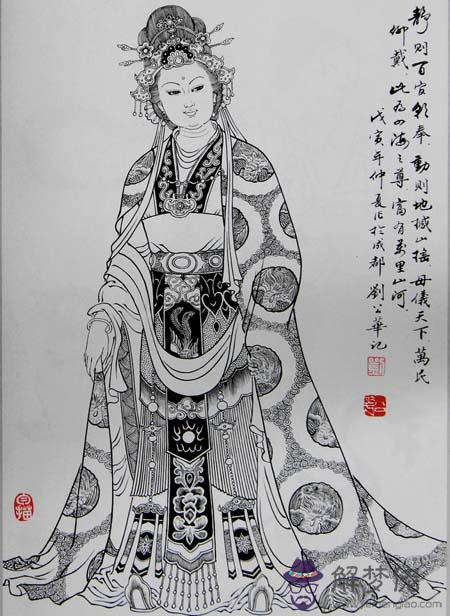 静则百官朝奉動则地撼山摇母儀天下萬民
仰戴此为四海之尊富有萬里山河
戊寅年仲夏作於成都劉公華记
白描
解梦佬